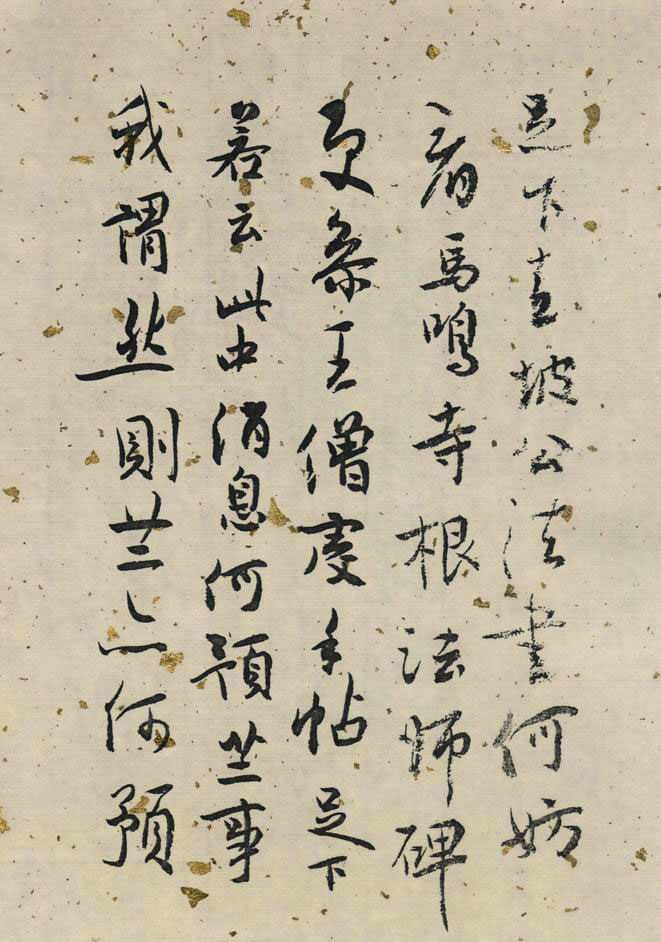 足下喜坡公法書何妨
看馬鳴寺根法師碑
更參王僧虔手帖足下
若云此中消息何預世事
我謂然則世亦何預